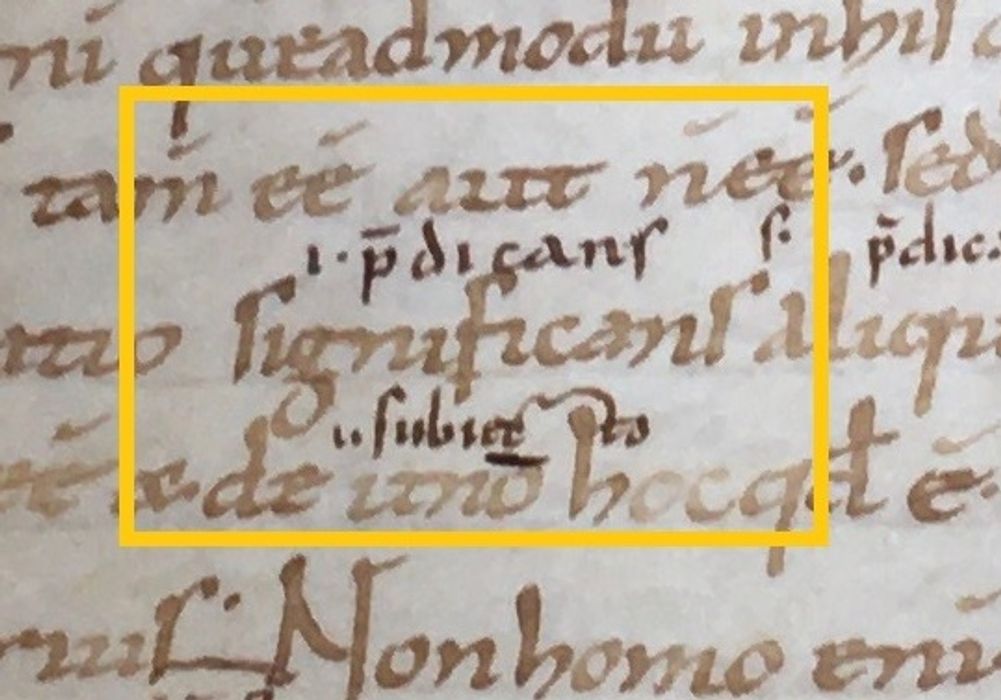 ni queadmodu inhil
tam̄ eē aut nēē. sed
.i. p̄dicans s: p̄dica
significans aliqu
.i. subiecto
de uno hocqđ ē.
Non homo eni